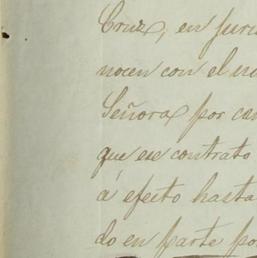 Cruz, en
nocen con el
Señora por
que ese contrato
á efecto hasta
do en parte por